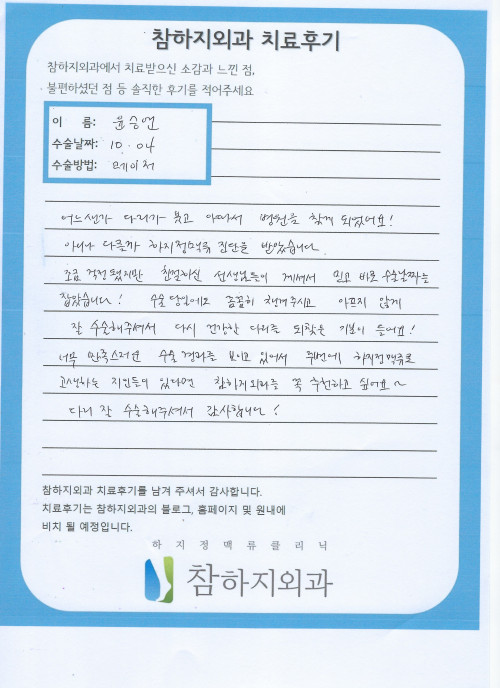 참하지외과 치료후기
참하지외과에서 치료받으신 소감과 느낀 점,
불편하셨던 점 등 솔직한 후기를 적어주세요
이 름: 윤승연
수술날짜: 10. 04
수술방법: 레이저
어느샌가 다리가 붓고 아파서 병원을 찾게 되었어요!
아니나 다를까 하지정맥류 진단을 받았습니다
조금 걱정됐지만 친절하신 선생님들이 계셔서 믿고 바로 수술날짜를
잡았습니다! 수술 당일에도 꼼꼼히 챙겨주시고 아프지 않게
잘 수술해주셔서 다시 건강한 다리를 되찾은 기분이 들어요!
너무 만족스러운 수술 결과를 보이고 있어서 주변에 하지정맥류로
고생하는 지인들이 있다면 참하지외과를 꼭 추천하고 싶어요~
다리 잘 수술해주셔서 감사합니다!
참하지외과 치료후기를 남겨 주셔서 감사합니다.
치료후기는 참하지외과의 블로그, 홈페이지 및 원내에
비치 될 예정입니다.
하지정맥류클리닉
참하지외과